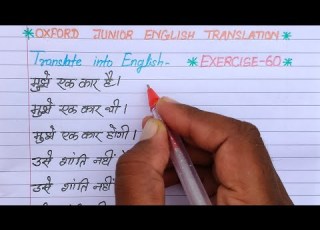 *OXFORD JUNIOR ENGLISH TRANSLATION*
Translate into English- *EXERCISE-60*
मुझे एक कार है।
मुझे एक कार थी।
मुझे एक कार होगी।
उसे शांति नहीं
उसे शांति नहीं